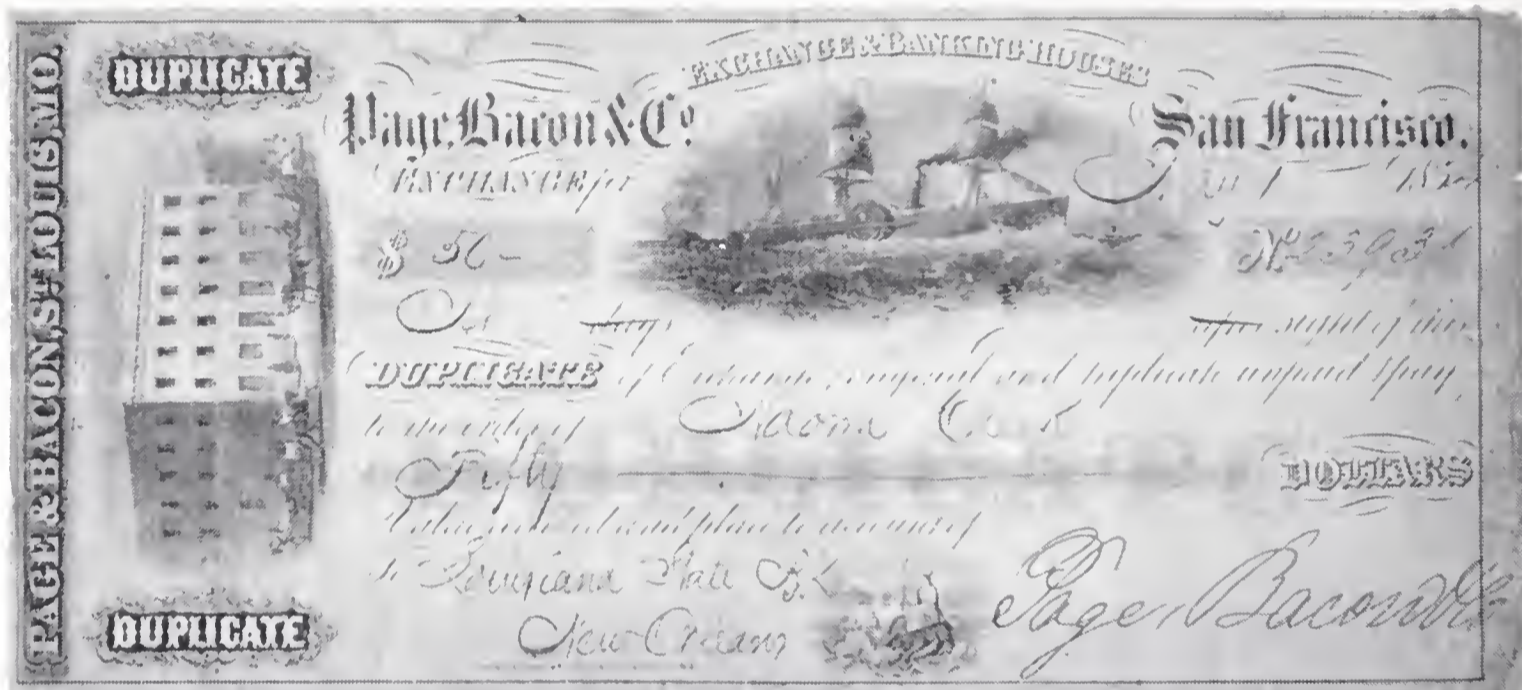 PAGE & BACON, ST. LOUIS, MO.
DUPLICATE
EXCHANGE & BANKING HOUSES
Page, Bacon & Co.
San Francisco.
EXCHANGE for
$ 50 -
No
days
sight of this
DUPLICATE of Exchange, original and triplicate unpaid, pay
to the order of Naomi Cook
Fifty DOLLARS
Value received and place to account of
To Louisiana State Bk
New Orleans
Page, Bacon & Co
DUPLICATE